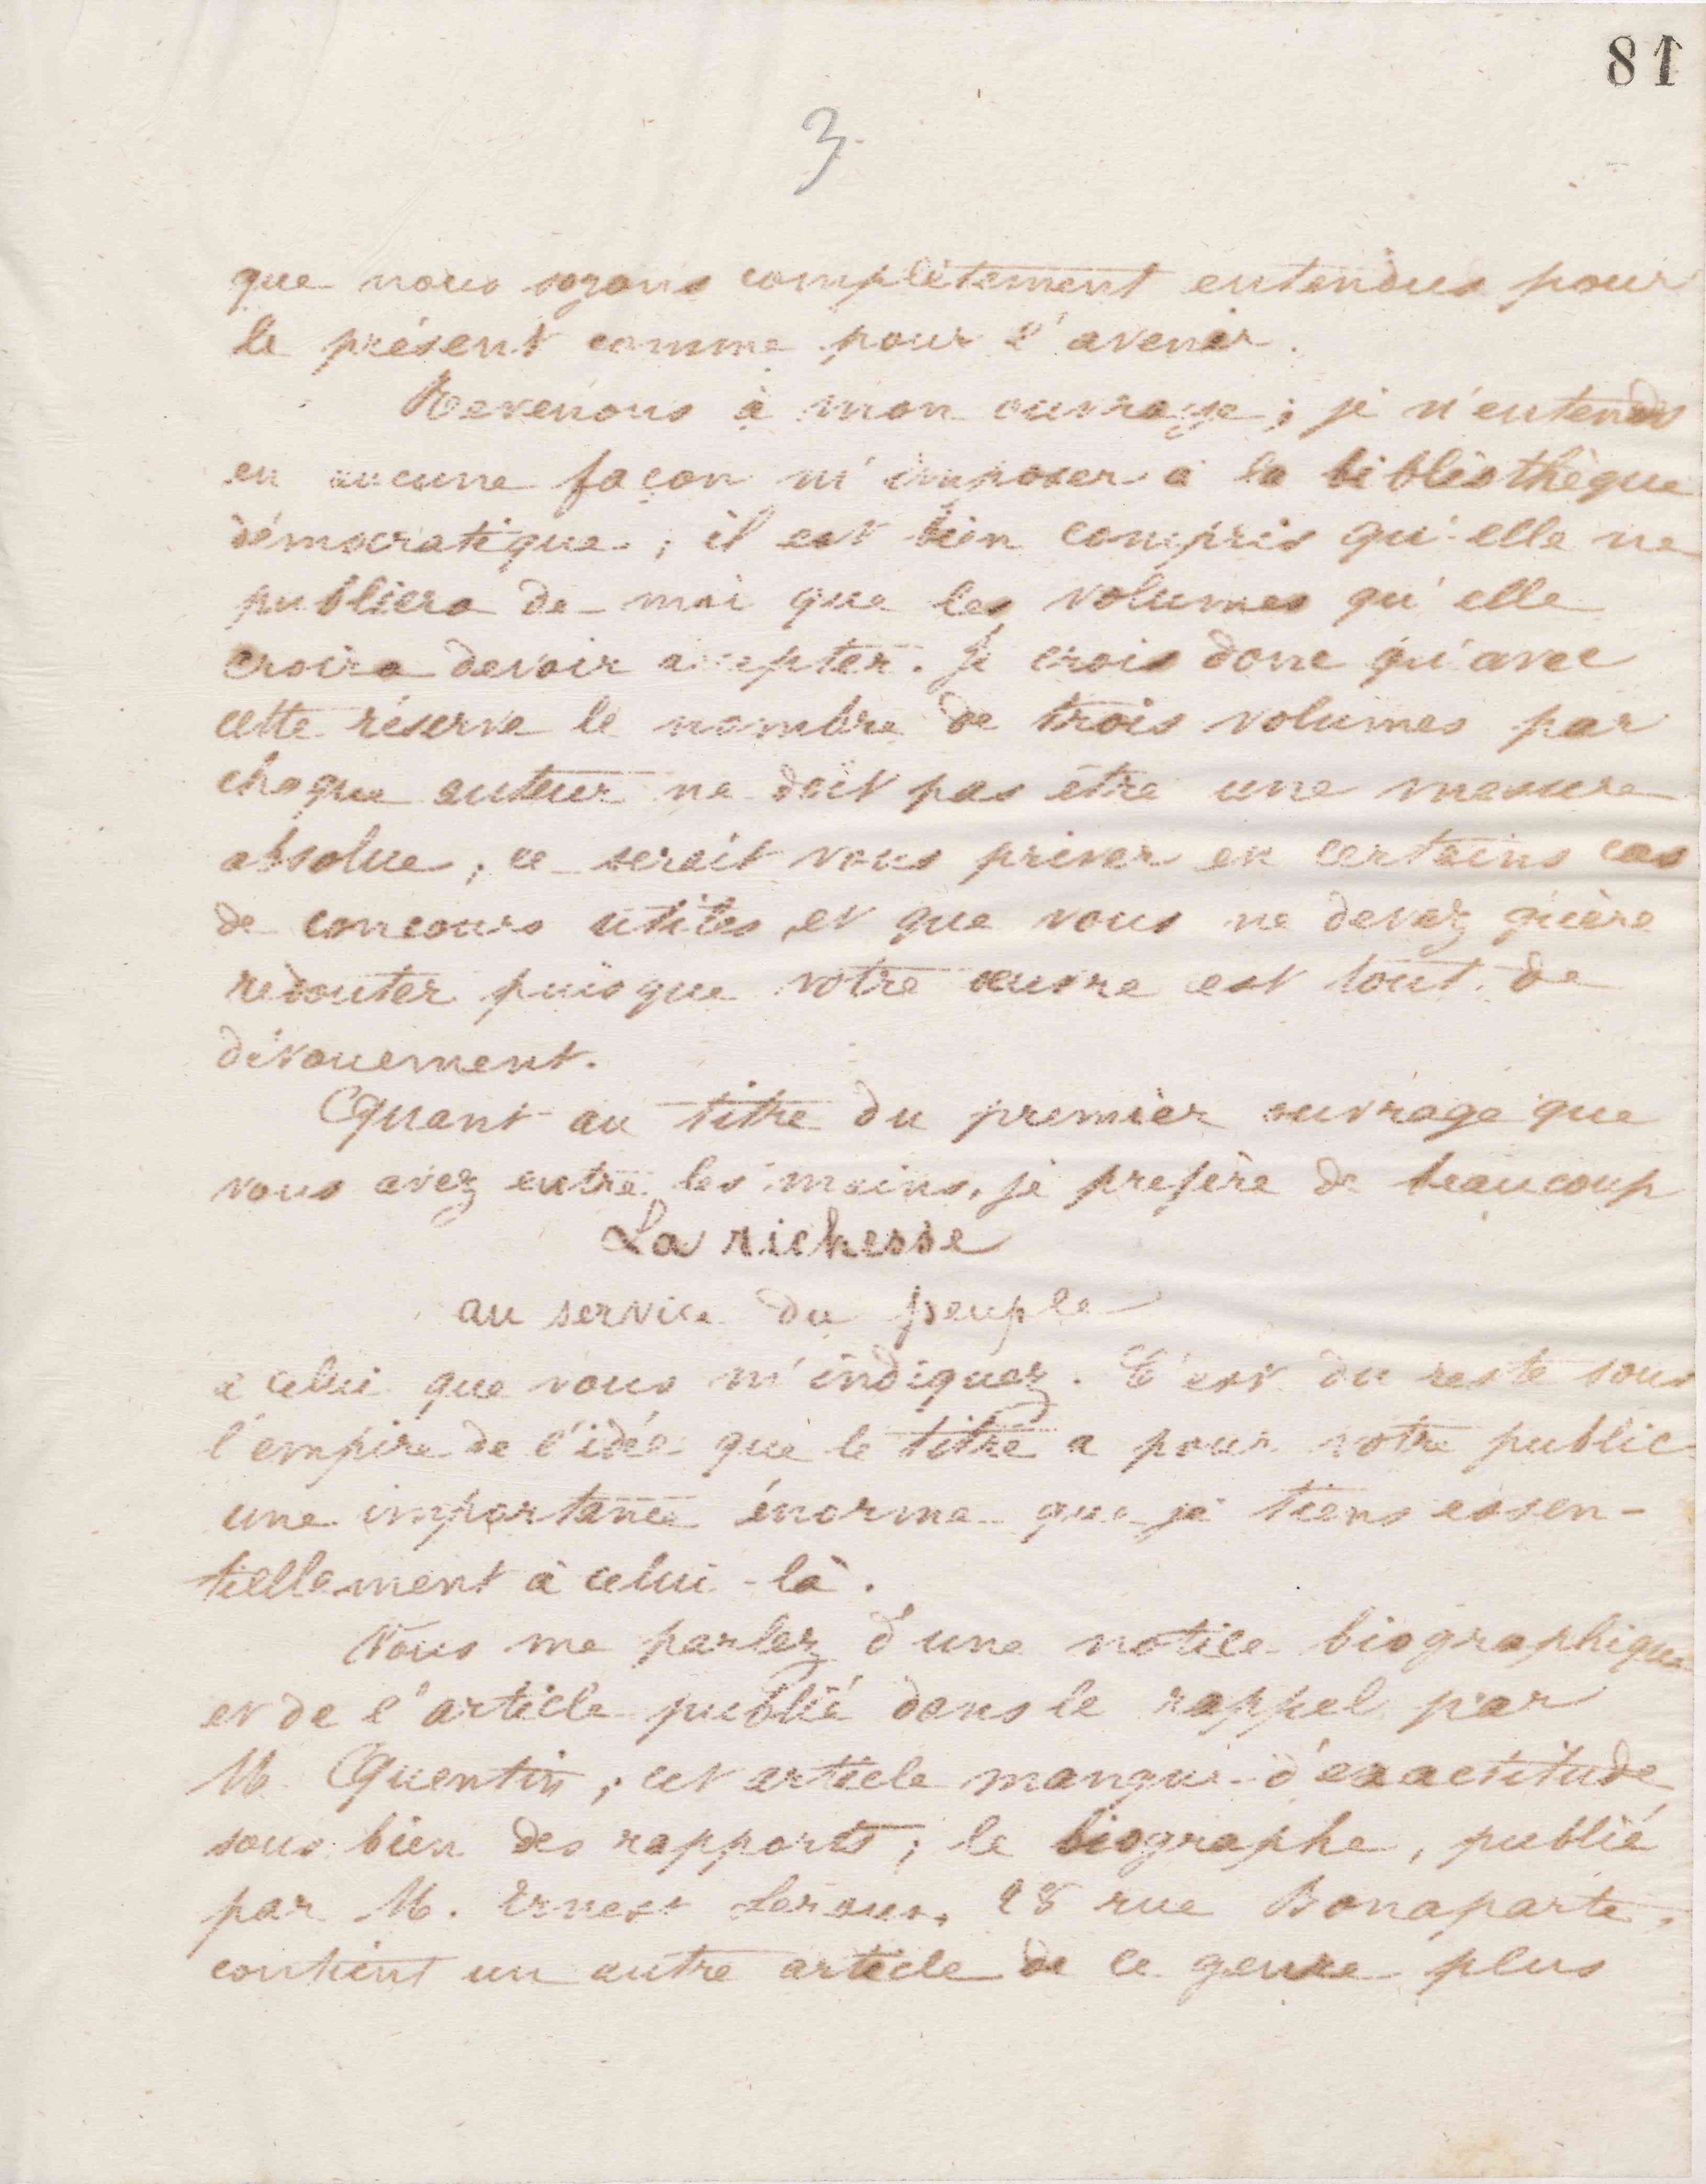 81
3
que nous soyons complètement entendus pour
le présent comme pour l'avenir.
Revenons à mon ouvrage ; je n'entends
en aucune façon m'imposer à la bibliothèque
démocratique ; il est bien compris qu'elle ne
publiera de moi que les volumes qu'elle
croira devoir accepter. Je crois donc qu'avec
cette réserve le nombre de trois volumes par
chaque auteur ne doit pas être une mesure
absolue, ce serait vous priver en certains cas
de concours utiles et que vous ne devez guère
redouter puisque votre œuvre est tout de
dévouement.
Quant au titre du premier ouvrage que
vous avez entre les mains, je prefère de beaucoup
La richesse
au service du peuple
à celui que vous m'indiquez. C'est du reste sous
l'empire de l'idée que le titre a pour votre public
une importance énorme que je tiens essen-
tiellement à celui-là.
Vous me parlez d'une notice biographique
et de l'article publié dans le rappel par
M. Quentin ; cet article manque d'exactitude
sous bien des rapports ; le biographe, publié
par M. Ernest Leroux, 28 rue Bonaparte,
contient un autre article de ce genre plus